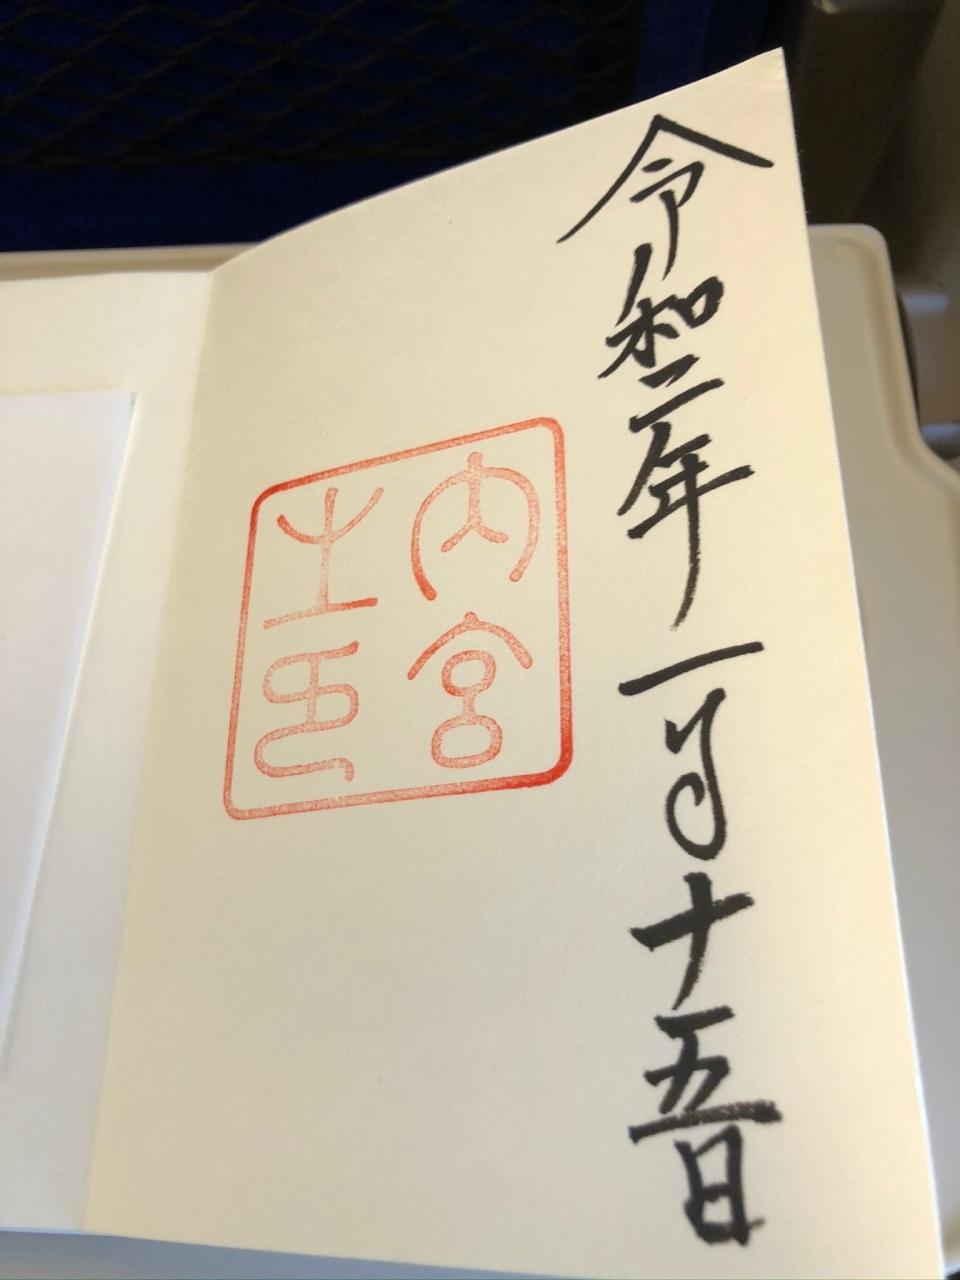 令和二年一月十五日
内宮
之印